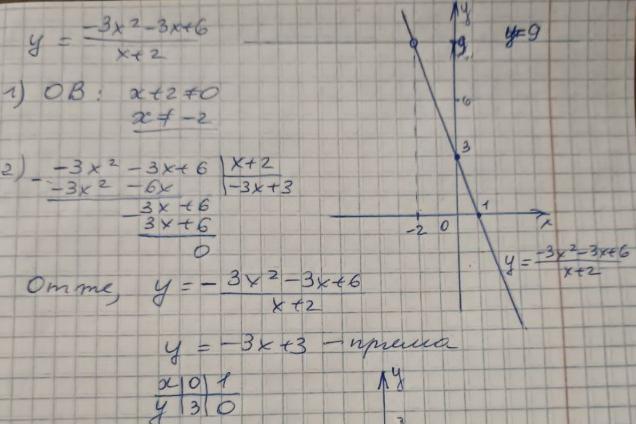 y = (-3x² - 3x + 6)/(x + 2)
1) ОВ: x + 2 ≠ 0
x ≠ -2
2) -3x² - 3x + 6 | x + 2
-3x² - 6x | -3x + 3
3x + 6
3x + 6
0
Отже, y = -(3x² - 3x + 6)/(x + 2)
y = -3x + 3 - пряма
x | 0 | 1
y | 3 | 0
y
y = 9
9
6
3
-2
0
1
x
y = (-3x² - 3x + 6)/(x + 2)
y